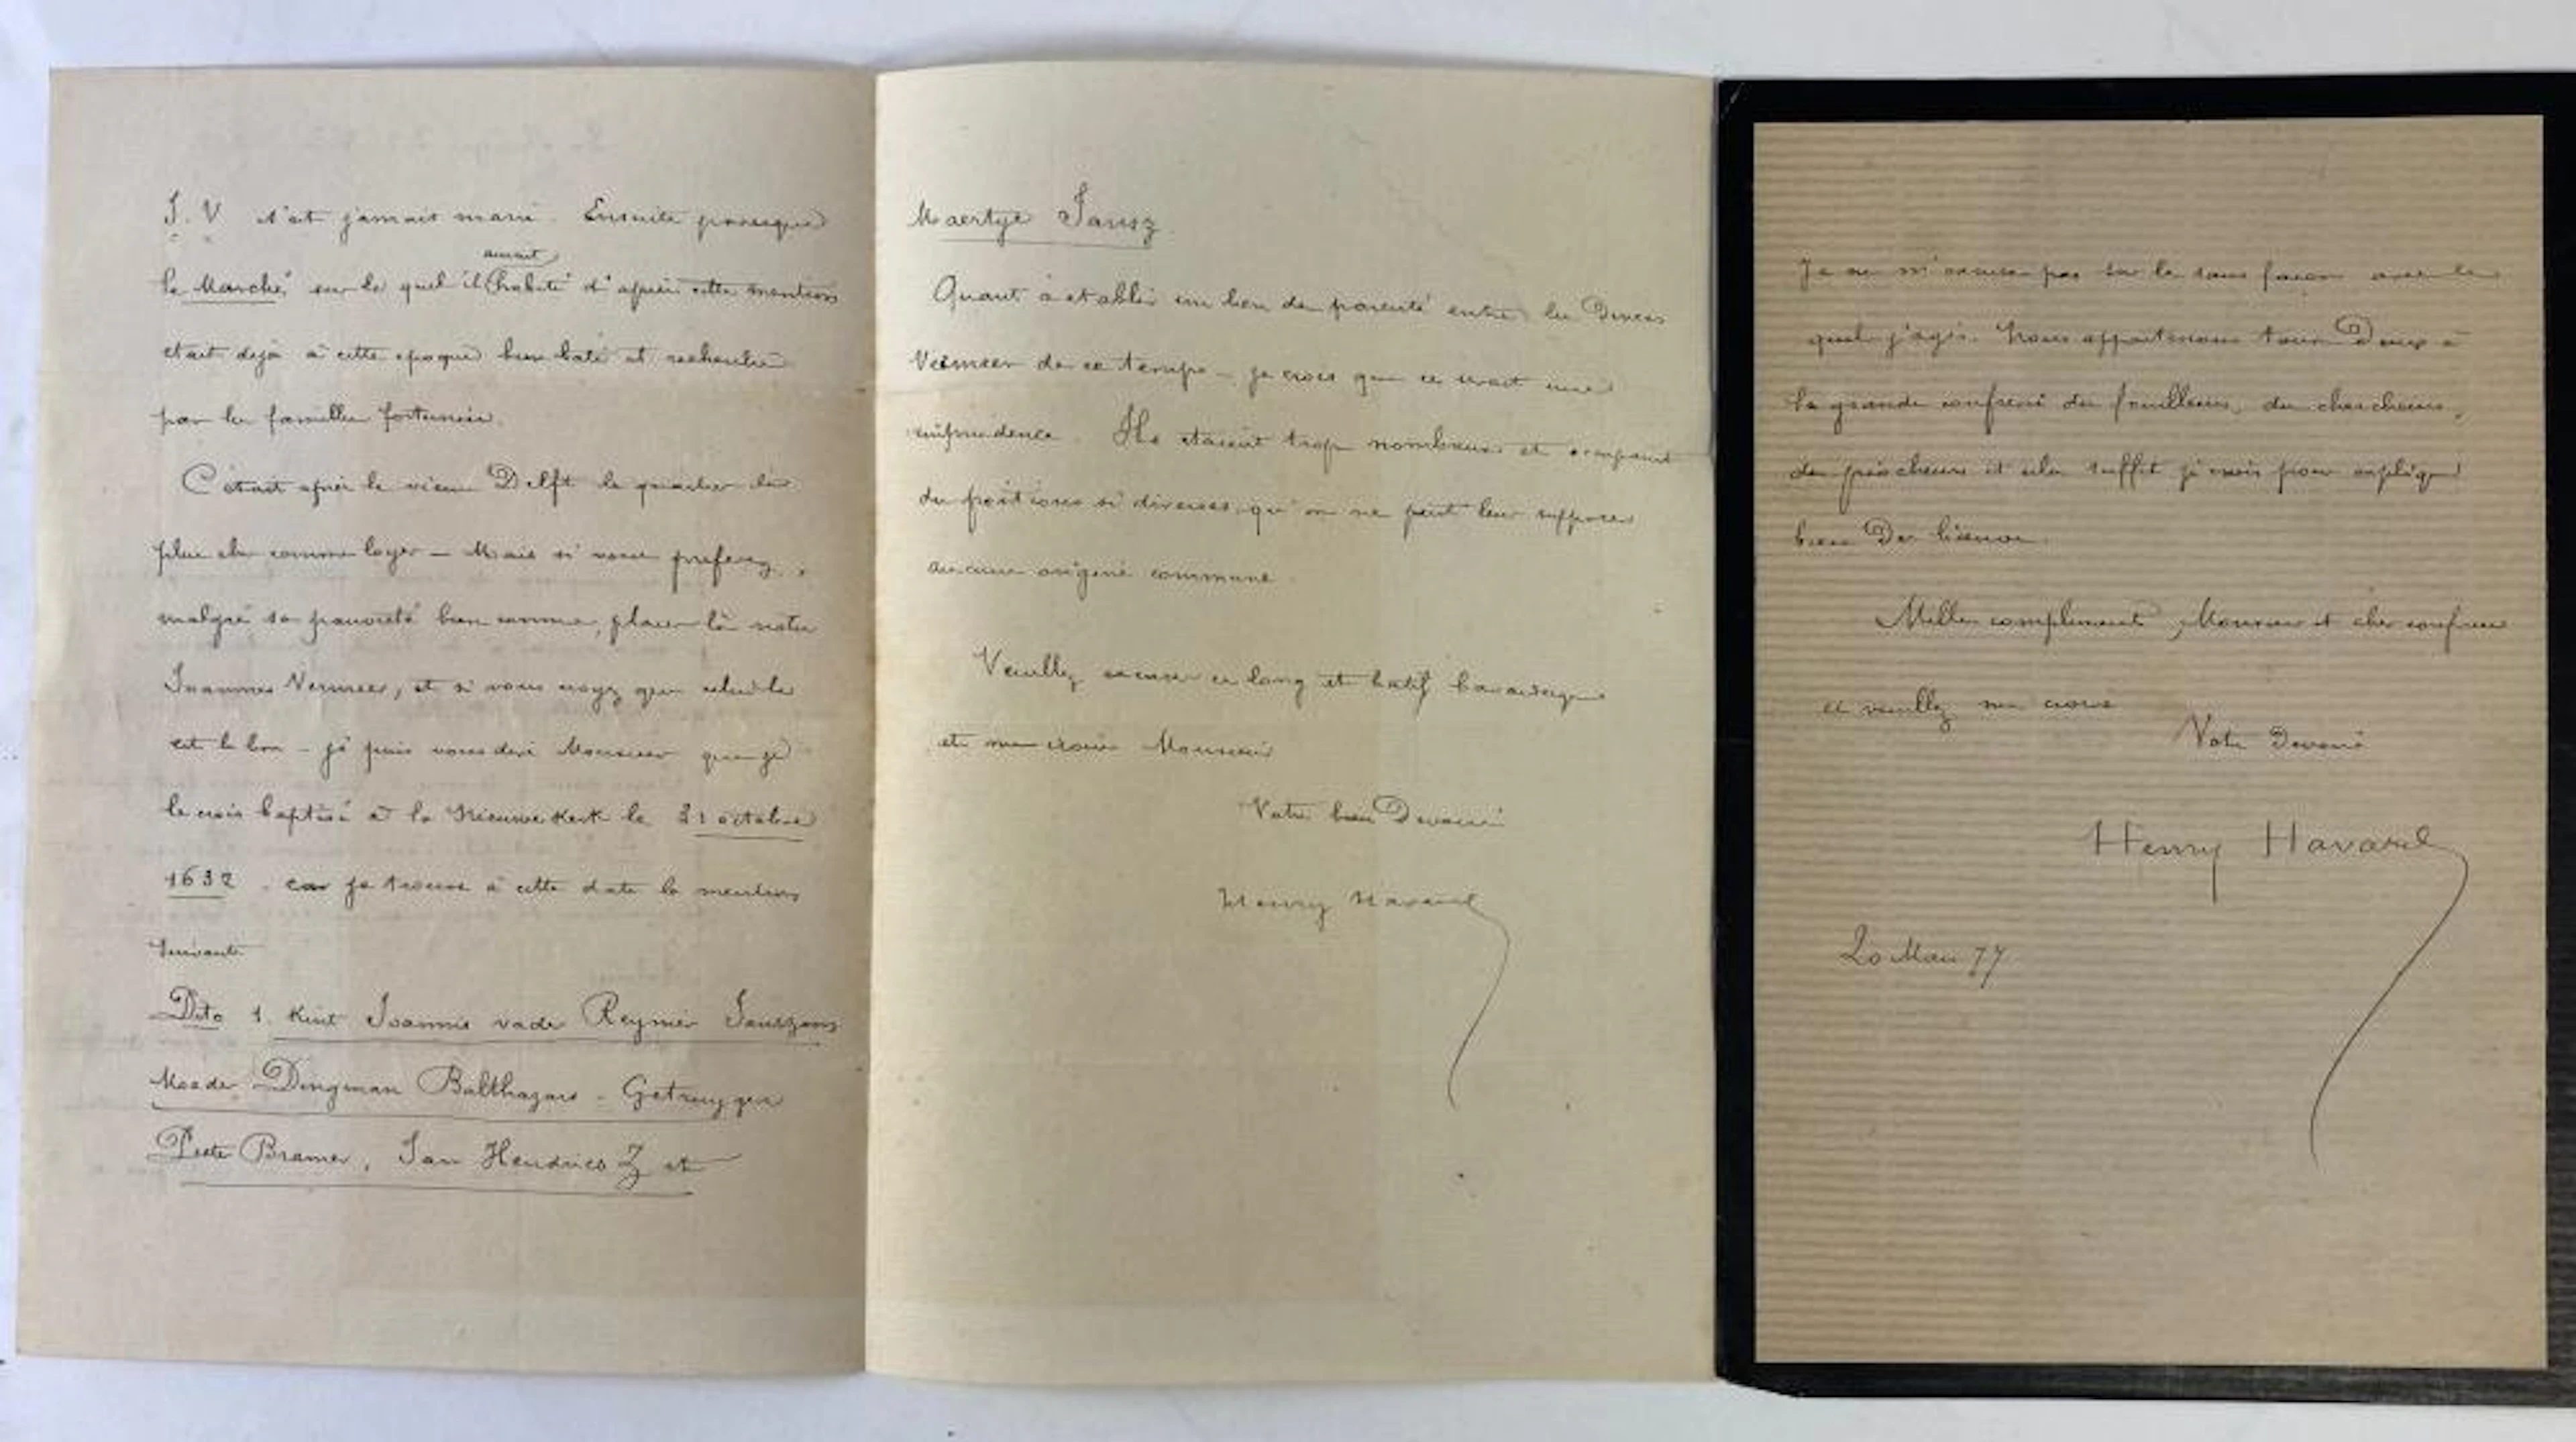 J. V s'est jamais marié. Ensuite presque
le Marché sur le quel il aurait habité d'après cette mention
etait dejà à cette epoque bien bati et recherché
par les familles fortunées.
C'etait après le vieux Delft le quartier le
plus cher comme loyer – Mais si vous preferez,
malgré sa pauvreté bien connue, placer là notre
Joannes Vermeer, et si vous croyez que celui la
est le bon – je puis vous dire Monsieur que je
le crois baptisé à la Nieuwe Kerk le 31 octobre
1632. car je trouve à cette date la mention
suivante
Dito 1. Kint Joannis vader Reynier Janszoons
Moeder Dingman Balthazars – Getruygen
Pieter Bramer, Jan Hendricx Z et
Maertge Jansz
Quant à etablir un lien de parenté entre les Divers
Vermeer de ce temps – je crois que ce serait une
imprudence. Ils etaient trop nombreux et occupaient
des positions si diverses qu'on ne peut leur supposer
aucune origine commune.
Veuillez excuser ce long et hatif bavardage
et me croire Monsieur
Votre bien Devoué
Henry Havard
Je ne m'excuse pas sur le sans façon avec le
quel j'agis. Nous appartenons tous Deux à
la grande confrerie des fouilleurs, des chercheurs,
des piocheurs et cela suffit je crois pour expliquer
bien Des
Mille compliments, Monsieur et cher confrere
et veuillez me croire
Votre Devoué
Henry Havard
20 Mai 77